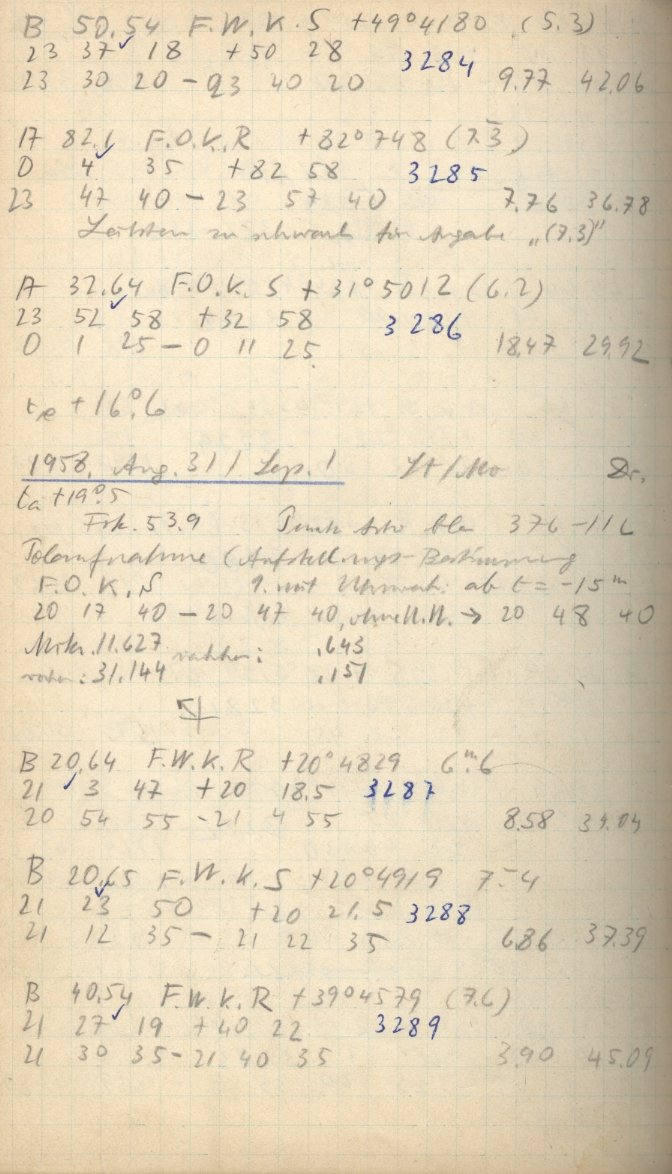 B 50.54 F.W.K.S +49°4180 (5.3)
23 37 18 +50 28 3284
23 30 20 - 23 40 20 9.77 42.06
A 82.1 F.O.K.R +82°748 (7.3)
0 4 35 +82 58 3285
23 47 40 - 23 57 40 7.76 36.78
zu schwach für Angabe „(7.3)"
A 32.64 F.O.K.S +31°5012 (6.2)
23 52 58 +32 58 3286
0 1 25 - 0 11 25 18.47 29.92
te +16°.6
1958, Aug. 31 / Sep. 1 St/Mo Dr.
ta +19°.5
Frk. 53.9 376 -
Polaufnahme (Aufstellungs-Bestimmung
F.O.K.S ab t = -15m
20 17 40 - 20 47 40, ohne → 20 48 40
Mikr. 11.627 nachher: .643
vorher: 31.144 .151
B 20.64 F.W.K.R +20°4829 6m.6
21 3 47 +20 18.5 3287
20 54 55 - 21 4 55 8.58
B 20.65 F.W.K.S +20°4919 7.4
21 23 50 +20 21.5 3288
21 12 35 - 21 22 35 6.86 37.39
B 40.54 F.W.K.R +39°4579 (7.6)
21 27 19 +40 22 3289
21 30 35 - 21 40 35 3.90 45.09